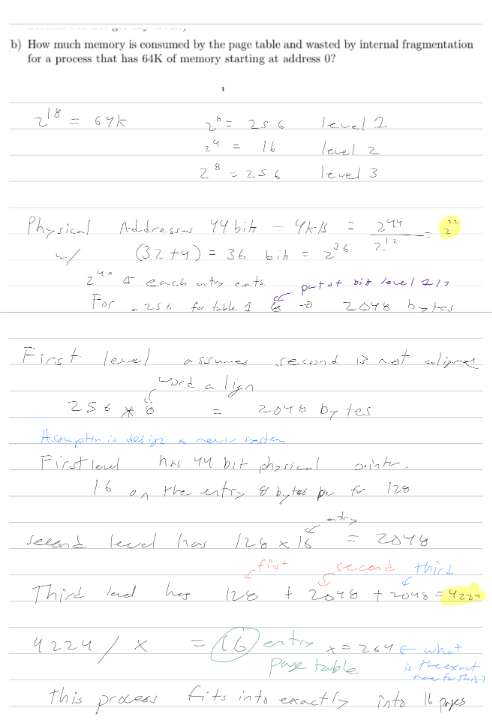 b) How much memory is consumed by the page table and wasted by internal fragmentation
for a process that has 64K of memory starting at address 0?
1
2^18 = 64k 2^8 = 256 level 1
2^4 = 16 level 2
2^8 = 256 level 3
Physical Addresses 44 bit - 4kB = 2^44/2^12 = 2^32
w/ (32+4) = 36 bit = 2^36
2^40 each entry eats put at bit level 2/3
For 256 for table 1 is → 2048 bytes
First level assumes second is not aligned
word align
256 * 8 = 2048 bytes
Assumption is design a new system
First level has 44 bit physical pointer.
16 on the entry 8 bytes per for 128
entry
second level has 128 x 16 = 2048
first second third
Third level has 128 + 2048 + 2048 = 4224
4224 / x = 16 entry x = 264 ← what
page table is the exact
name for this?
this process fits into exactly into 16 pages